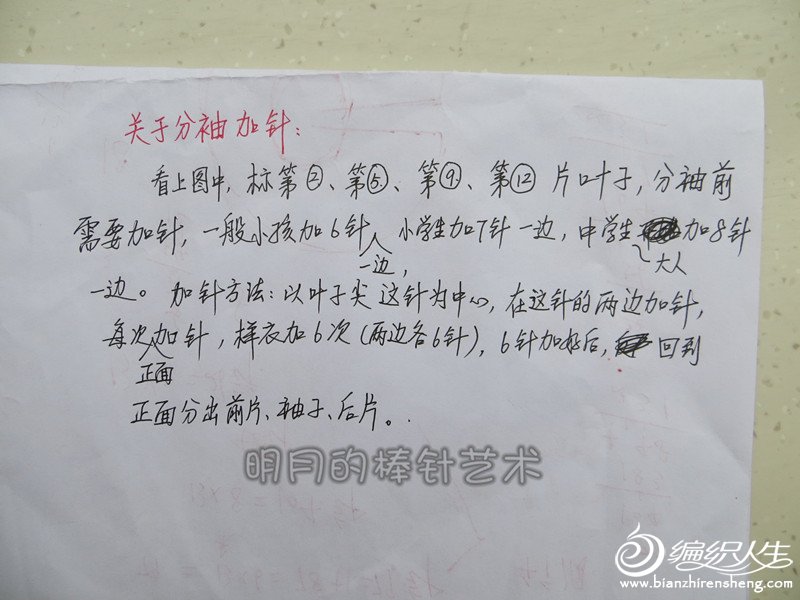 关于分袖加针:
看上图中,标第②、第⑤、第⑨、第⑫片叶子,分袖前
需要加针,一般小孩加6针一边,小学生加7针一边,中学生~大人加8针
一边。加针方法:以叶子尖这针为中心,在这针的两边加针,
每次正面加针,样衣加6次(两边各6针),6针加好后,回到
正面分出前片、袖子、后片。
明月的棒针艺术
编织人生
www.bianzhirensheng.com